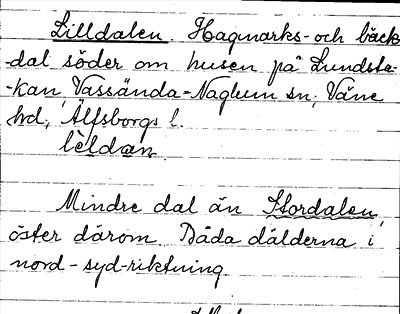 Lilldalen. Hagmarks- och bäck
-dal söder om husen på Lundsba-
-kan, Vassända-Naglum sn, Väne
hd, Älfsborgs l.
lèldan
Mindre dal än Stordalen
öster därom. Båda dälderna i
nord-syd-riktning